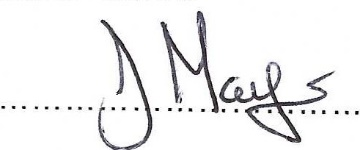 J Mays